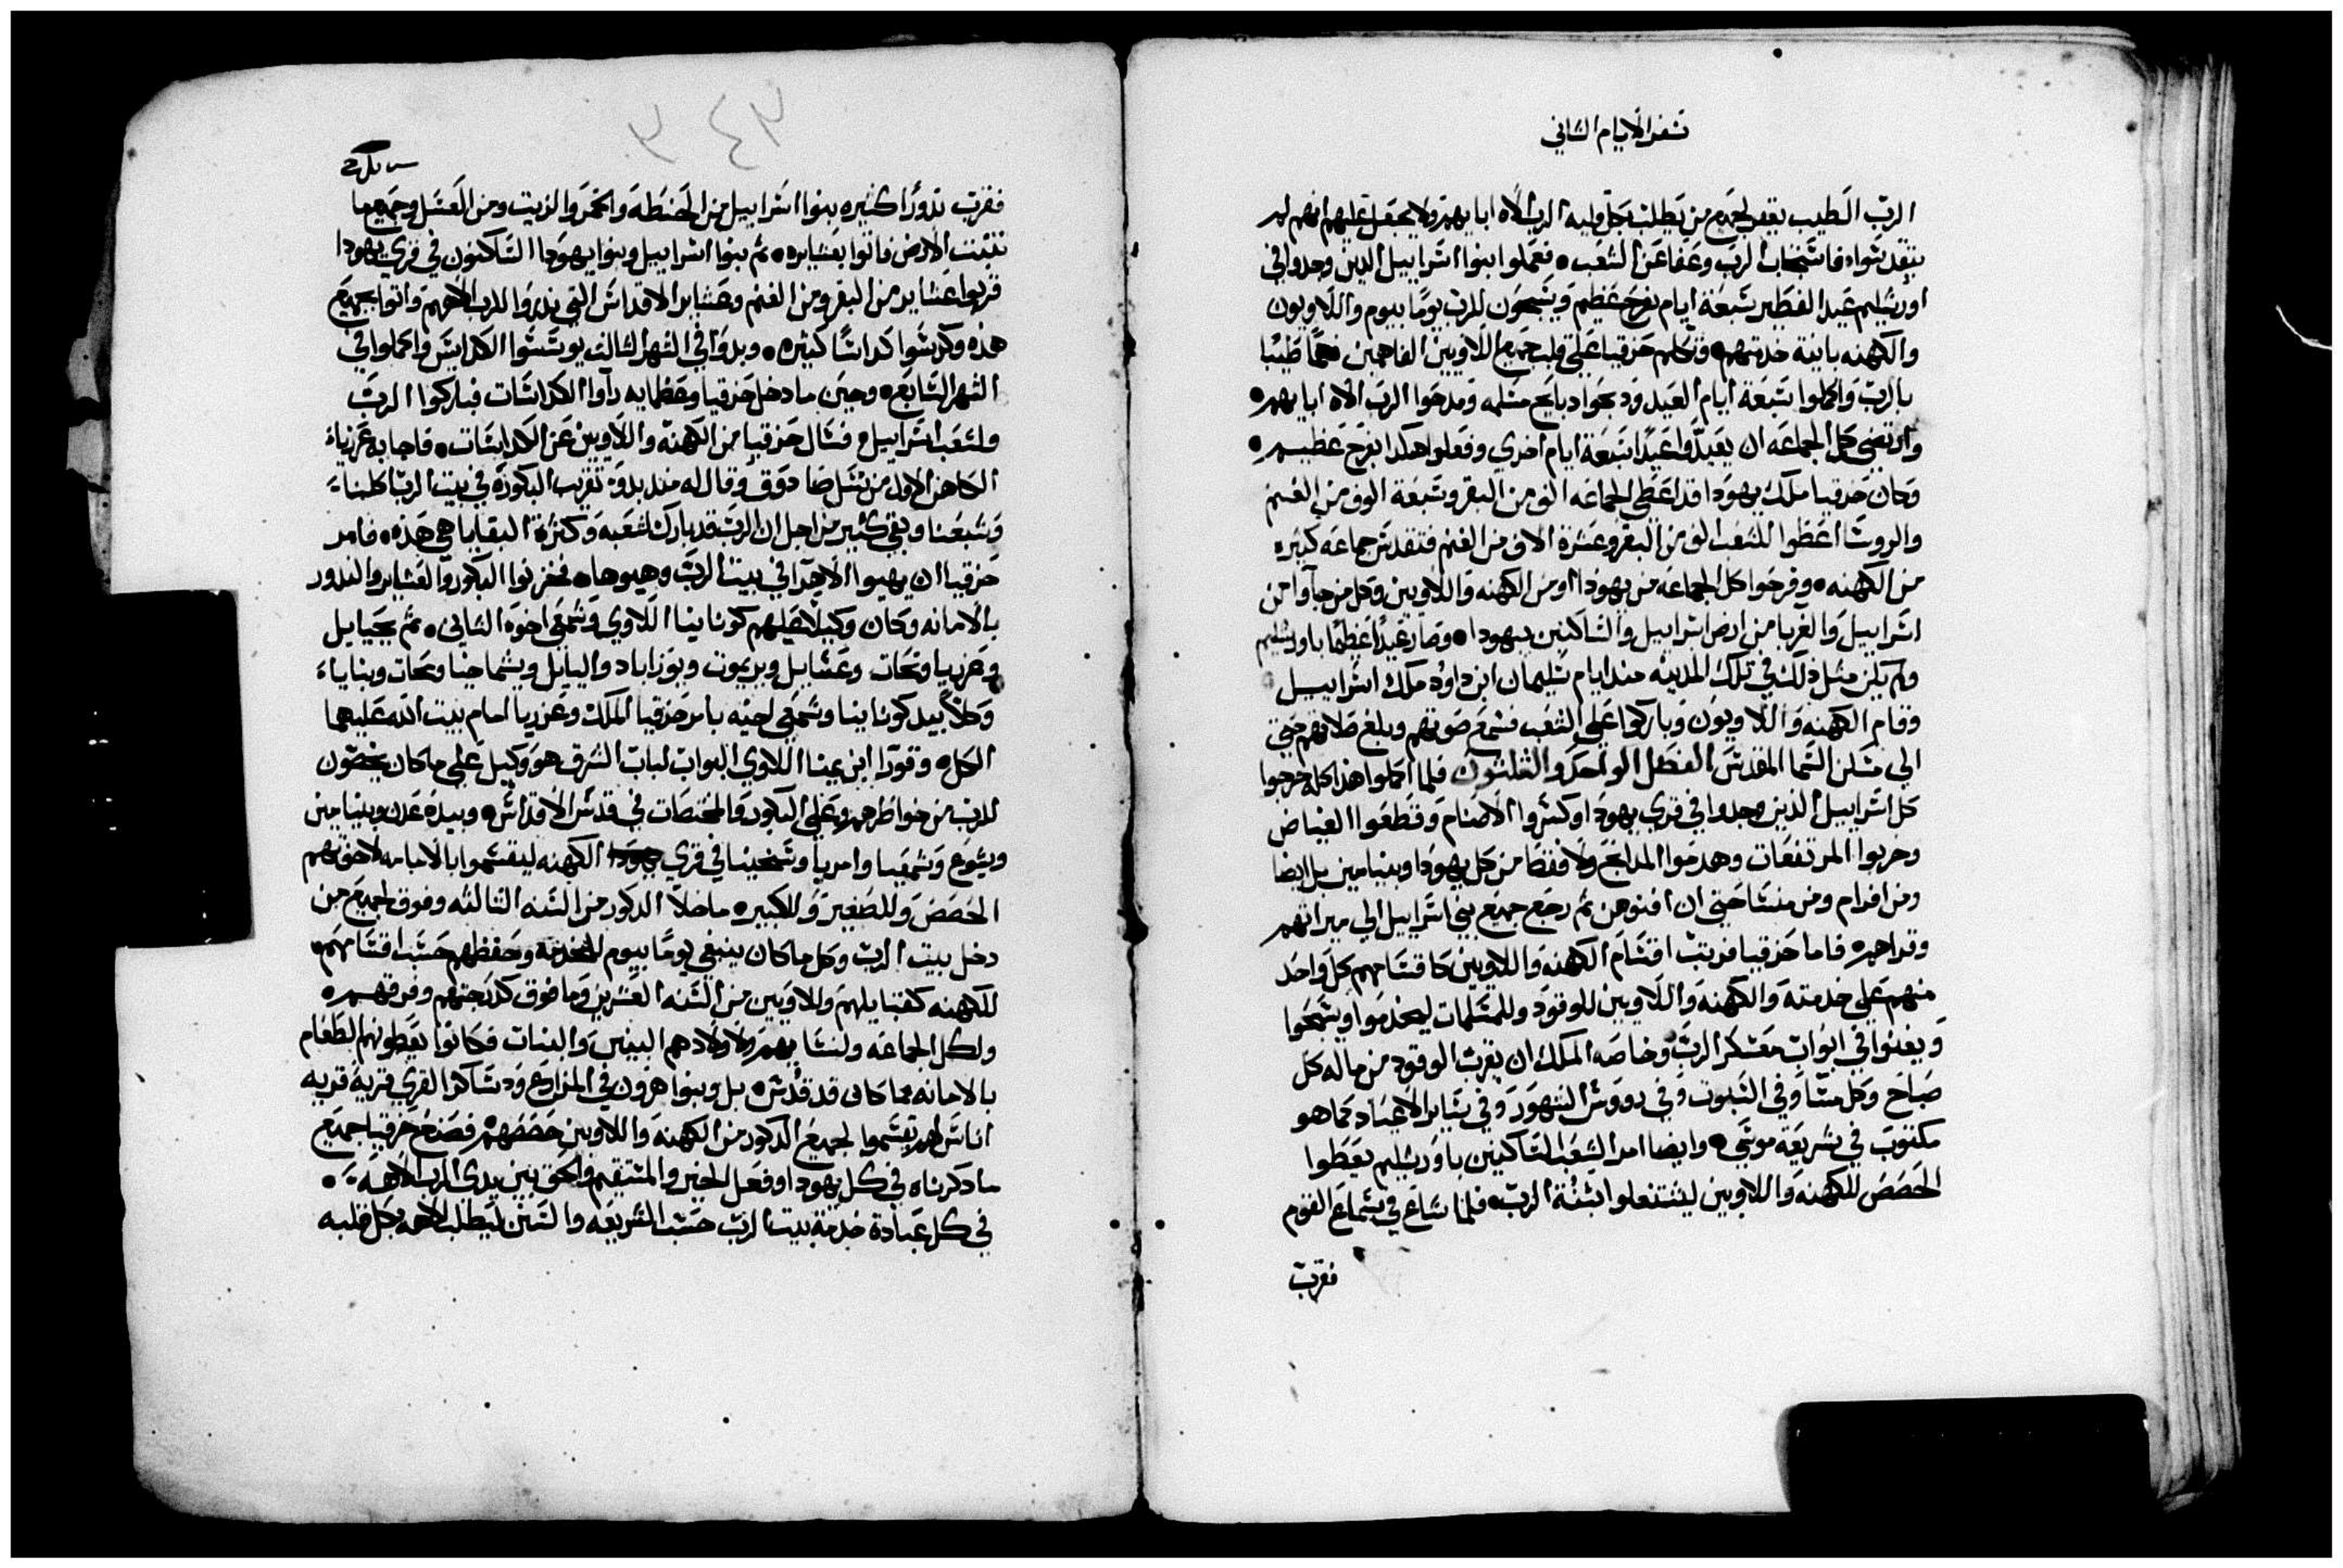 سفر الايام الثاني
الربّ الطيب يغفر لجميع من يطلب بكل قلبه الرب الاه ابايهم ولا يحقل عليهم انهم لم
يتقدسوا، فاستجاب الرب وعفا عن الشعب، فعملوا بنوا اسراييل الدين وجدوا في
اورشليم عيد الفطير سبعة ايام بفرح عظيم ويسبحون للرب يومًا بيوم واللاويون
والكهنه باينة خدمتهم، وتكلم حزقيا على قلب جميع اللاويين الفاهمين فهمًا طيبًا
بالربّ واكملوا سبعة ايام العيد ودبحوا دبايح مسلمه ومدحوا الرب الاه ابايهم،
وارتضي كل الجماعه ان يعيدّوا عيدًا سبعة ايام اخري وفعلوا هكدا بفرح عظيم،
وكان حزقيا ملك يهودا قد اعطي الجماعه الف من البقر وسبعة الوف من الغنم
والروسا اعطوا للشعب الف من البقر وعشرة الاف من الغنم فتقدس جماعه كثيره
من الكهنه، وفرحوا كل الجماعه من يهودا ومن الكهنه واللاويين وكل من جاوا من
اسراييل والغربا من ارض اسراييل والساكنين بيهودا، وصار عيدًا عظيمًا باورشليم
ولم يكن مثل ذلك في تلك المدينه مند ايام سليمان ابن داود ملك اسراييل
وقام الكهنه واللاويون وباركوا علي الشعب فسمع صوتهم وبلغ صلاتهم حتي
الي مسكن السما المقدس الفصل الواحد والثلثون فلما اكملوا هذا كله خرجوا
كل اسراييل الذين وجدوا في قري يهودا وكسّروا الاصنام وقطعوا الغياض
وخربوا المرتفعات وهدموا المدابح ولا فقط من كل يهودا وبنيامين بل ايضا
ومن افرام ومن منسا حتي ان افنوهن ثم رجع جميع بني اسراييل الي ميراتهم
وقراهم، فاما حزقيا فرتب اقسام الكهنه واللاويين كاقسامهم كل واحد
منهم علي خدمته والكهنه واللاويين للوقود وللمسلمات ليخدموا ويسبحوا
ويغنوا في ابواب معسكر الربّ وخاصه الملك ان يقرب الوقود من ماله كل
صباح وكل مسا وفي السبوت وفي رووس الشهور وفي ساير الاعياد كما هو
مكتوب في شريعة موسي، وايضا امر الشعب الساكنين باورشليم يعطوا
الحصص للكهنه واللاويين ليشتغلوا بسنة الربّ، فلما شاع في سماع القوم
فقربّ
٣٤٣
فقربّ ندورًا كثيره بنوا اسراييل من الحنطة والخمر والزيت ومن العسل وجميع ما
تنبت الارض فاتوا بعشايره، ثم بنوا اسراييل وبنوا يهودا الساكنون في قري يهودا
قربوا عشاير من البقر ومن الغنم وعشاير الاقداس التي ندروا للرب الاههم واتوا بجميع
هذه وكرسوا كداسًا كثيره، وبدوا في الشهر الثالث يوسسوا الكداديس واكملوا في
الشهر السابع، وحين ما دخل حزقيا وعظمايه راوا الكداسات فباركوا الربّ
ولشعب اسراييل، فسال حزقيا من الكهنه واللاويين عن الكداسات، فاجابه عزرياءَ
الكاهن الاول من نسل صادوق وقال له مند بدو تقريب البكوره في بيت الربّ اكلنا،
وشبعنا وبقي كثير من اجل ان الرب قد بارك لشعبه وكثرة البقايا هي هذه، فامر
حزقيا ان يهيوا الاهرا في بيت الربّ وهيوها، فخزنوا البكور والعشاير والندور
بالامانه وكان وكيلًا عليهم كونانيا اللاوي وشمعي اخوه الثاني، ثم يحيايل
وعزريا ونحات وعسايل ويريموت ويوزاباد واليايل ويشماخيا ومحات وبناياءَ
وكلّا بيد كونانيا وشمعي اخيه بامر حزقيا الملك وعزريا امام بيت الله عليهما
الكل، وقورا ابن يمنا اللاوي البواب لباب الشرق هو وكيل علي ما كان يخصّون
للرب من خواطرهم وعلي البكور والمختصات في قدس الاقداس، وبيده عدن وبنيامين
ويشوع وشمعيا وامريا وشخينيا في قري الكهنه ليقسموا بالامانه لاخوتهم
الحصص وللصغير وللكبير، ماخلا الدكور من السنه الثالثه وفوق لجميع من
دخل بيت الربّ وكل ما كان ينبغي يومًا بيوم للخدمه وحفظهم حسب اقسامهم،
للكهنه كقبايلهم واللاويين من السنه العشرين وما فوق كدرجتهم وفرقهم،
ولكل الجماعه ولنسايهم ولاولادهم البنين والبنات فكانوا يعطونهم الطعام
بالامانه مما كان قد قُدس، بل وبنوا هرون في المزارع ودساكر القري قرية قريه
اناس لهم يقسموا لجميع الدكور من الكهنه واللاويين حصصهم، فصنع حزقيا جميع
ما دكرناه في كل يهودا وفعل الخير والمستقيم والحق بين يدي الرب الاهه،
في كل عبادة خدمة بيت الربّ حسب الشريعه والسنن ليطلب الاهه بكل قلبه